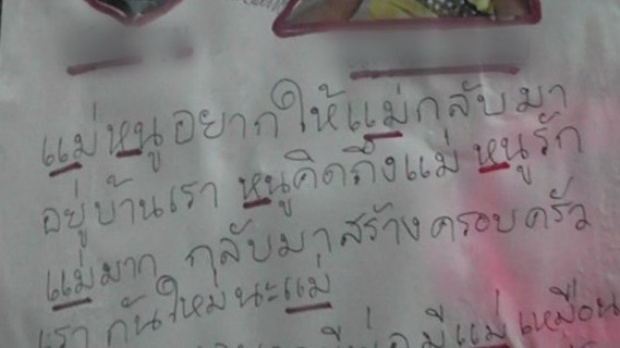 แม่หนูอยากให้แม่กลับมา
อยู่บ้านเรา หนูคิดถึงแม่ หนูรัก
แม่มาก กลับมาสร้างครอบครัว
เรากันใหม่นะแม่
มีแม่เหมือน